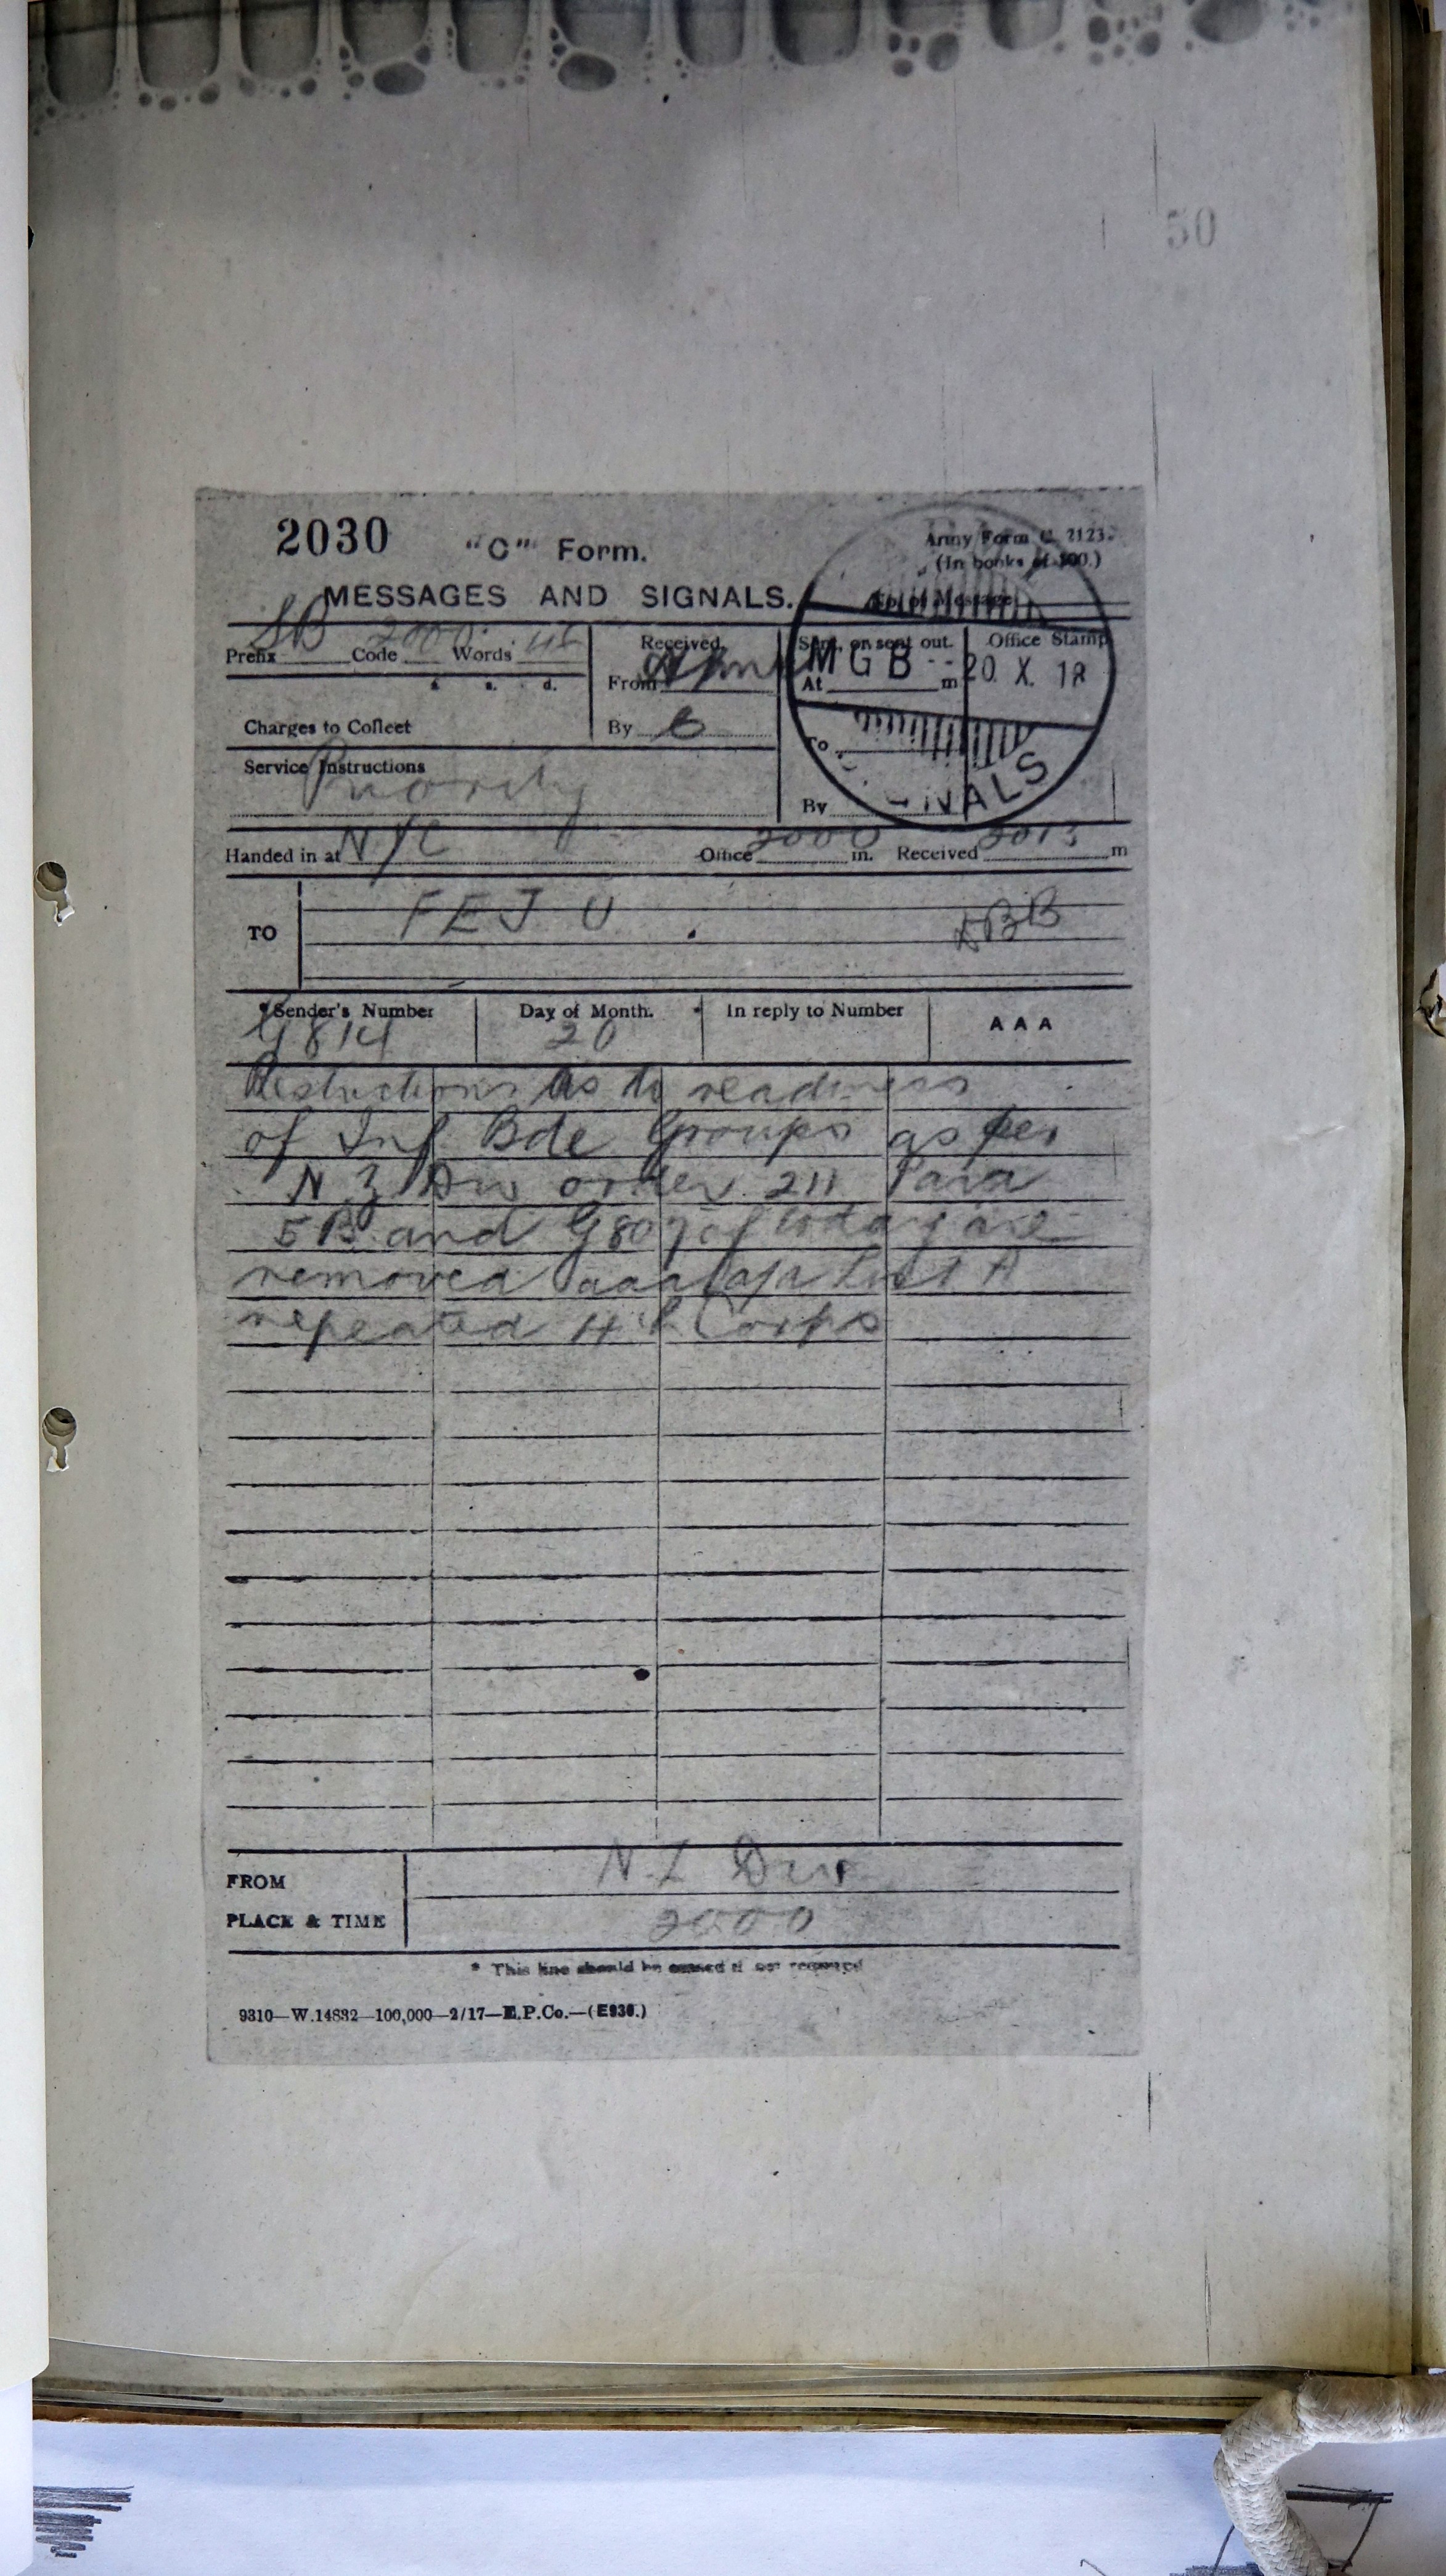 50
2030
"C" Form.
Army Form C. 2123.
(In books of 100.)
MESSAGES AND SIGNALS.
No. of Message
Prefix SB Code 2000 Words 45
Received
From
By
Sent, or sent out.
At m
To
By
Office Stamp
MGB 20 X. 18
SIGNALS
£ s. d.
Charges to Collect
Service Instructions
Priority
Handed in at NYC Office 2000 m. Received 2013 m
TO
FEJU
*Sender's Number
G814
Day of Month.
20
In reply to Number
AAA
Restrictions as to readiness
of Inf Bde Groups as per
N Z Div order 211 Para
5B and G807 of today are
removed aaa List A
repeated 4th Corps
FROM N Z Div
PLACE & TIME 2000
* This line should be erased if not required
9310—W.14832—100,000—2/17—E.P.Co.—(E930.)